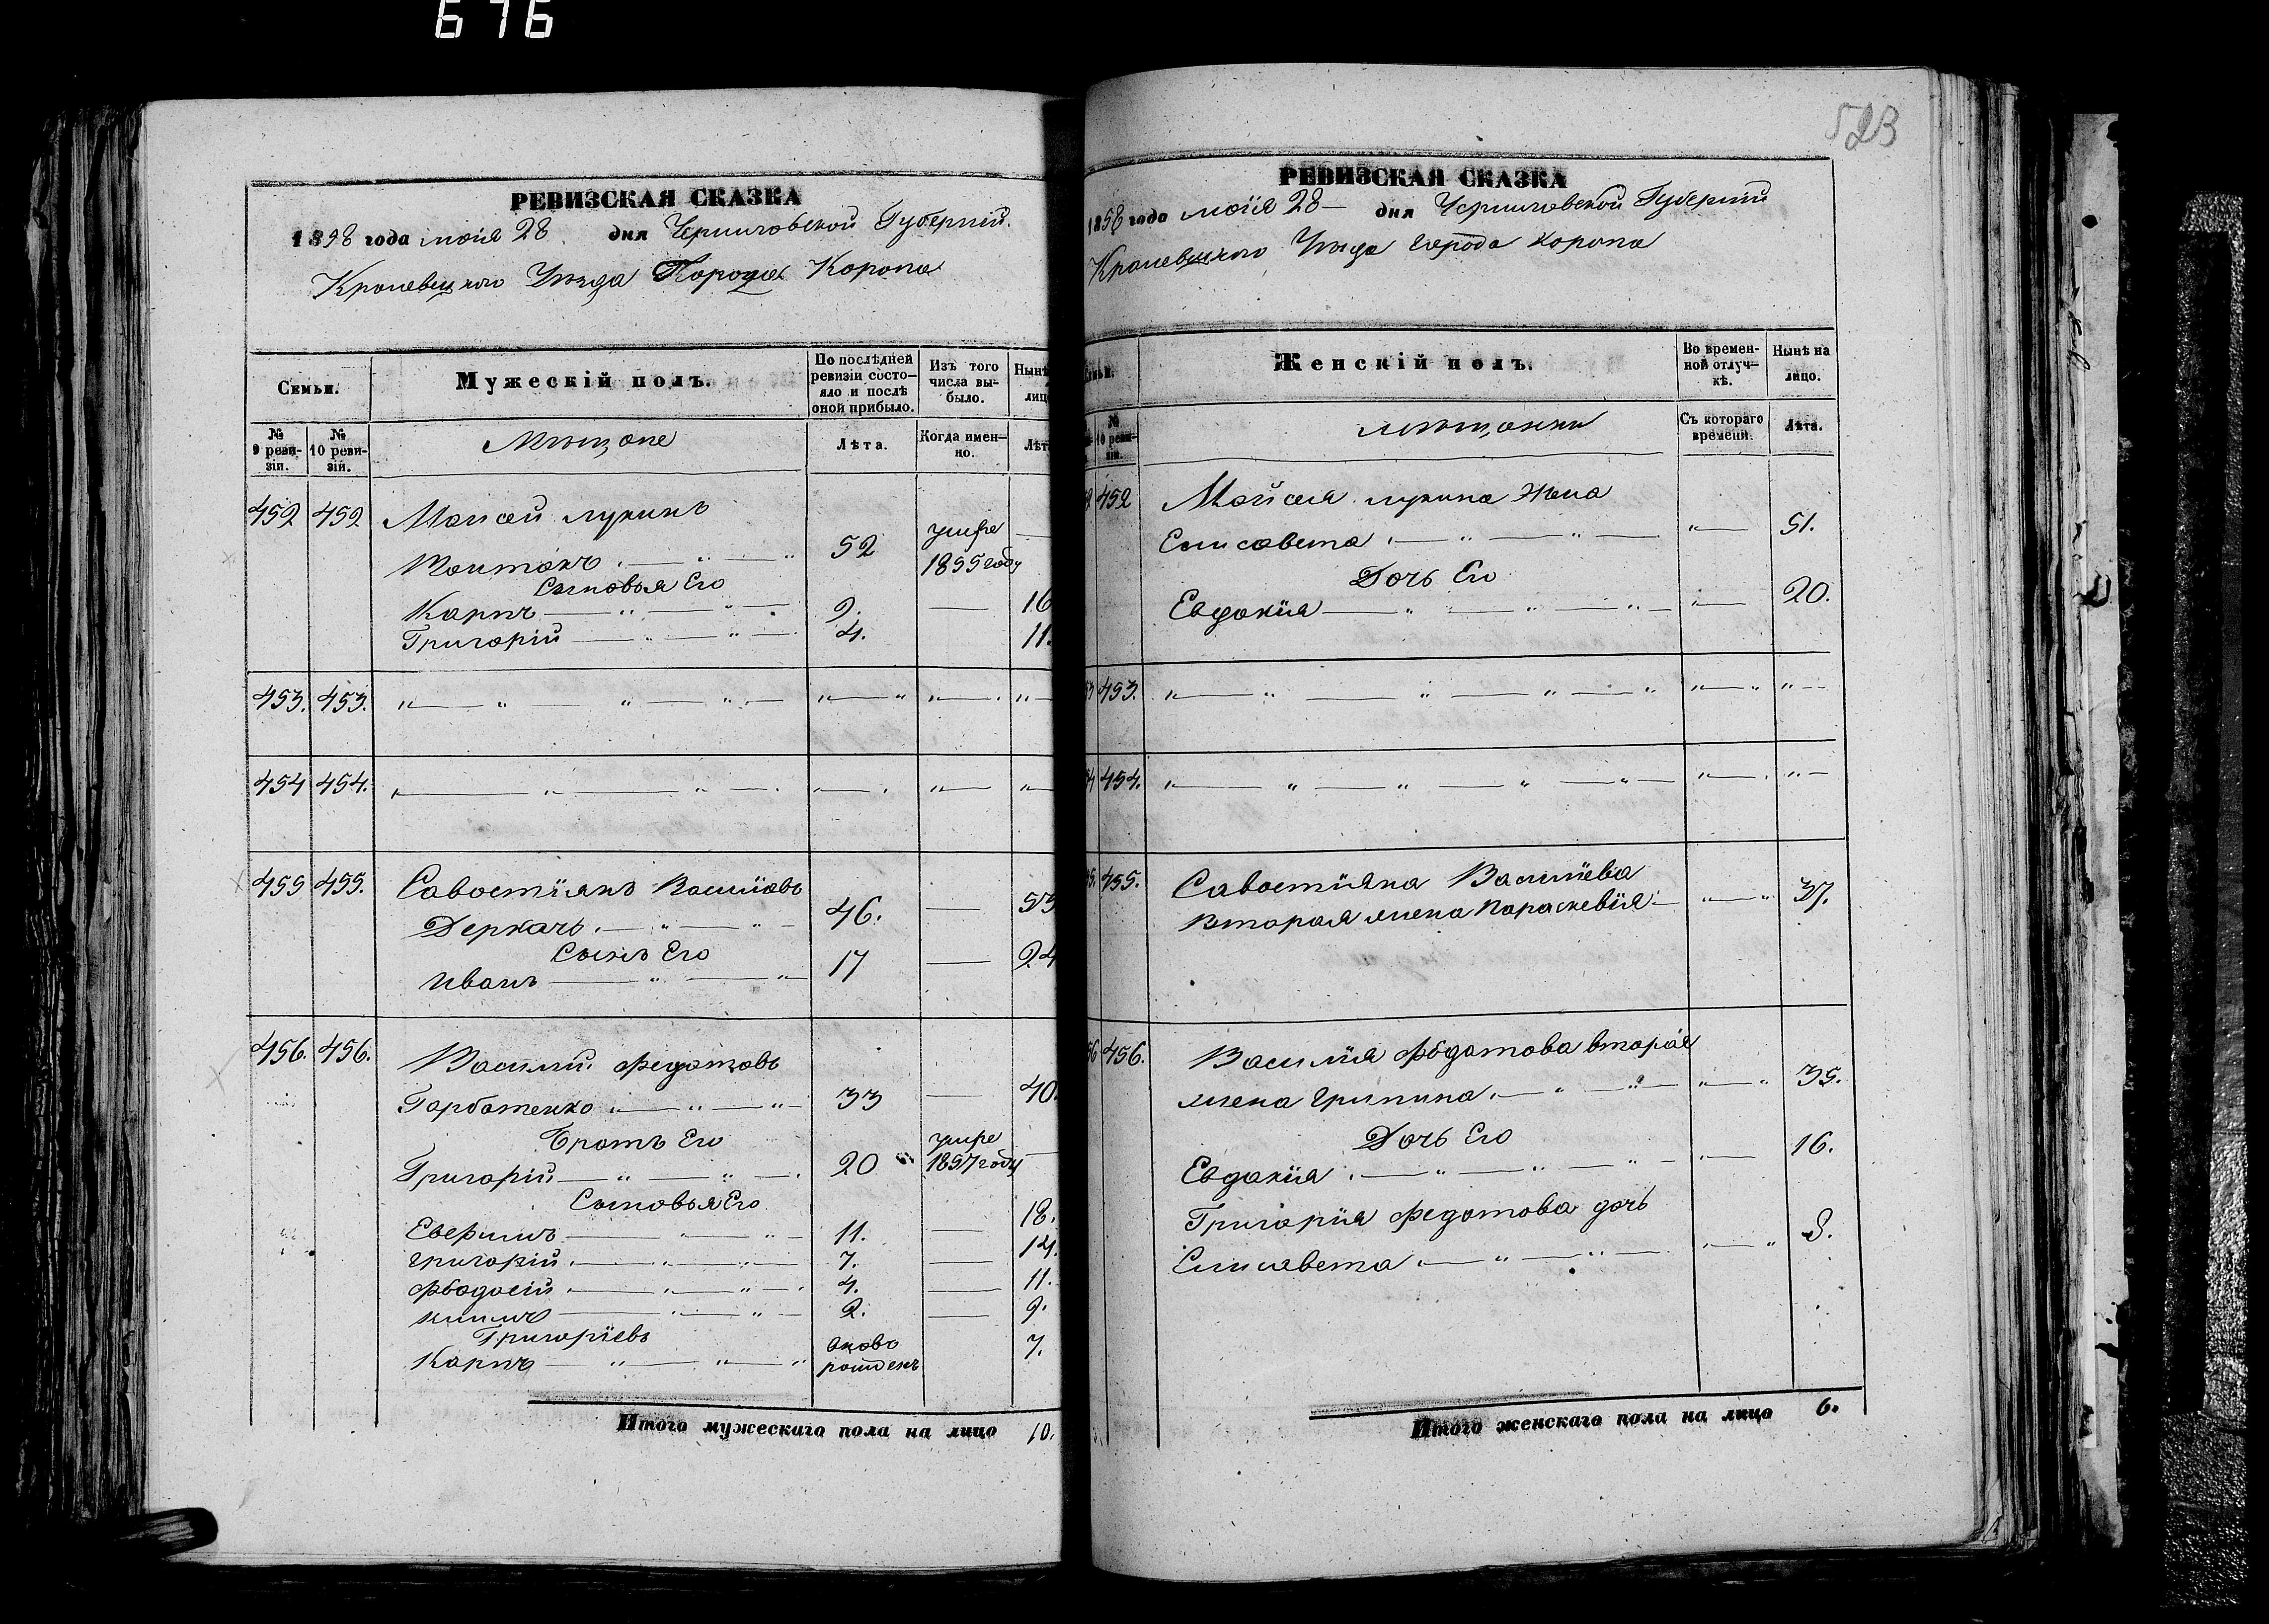 676
РЕВИЗСКАЯ СКАЗКА
1858 года мая 28 дня Черниговской Губерніи
Кролевецкого Уезда Города Коропа
Семьи.
Мужескій полъ.
По послѣдней ревизіи состо-
яло и послѣ
оной прибыло.
Изъ того
числа вы-
было.
Нынѣ
лицо
№
9 реви-
зіи.
№
10 реви-
зіи.
Мѣщане
Лѣта.
Когда имен-
но.
Лѣта
452 452 Моисей Лукинъ
52 умре
1855 году
Сыновья Его
Карпъ 9. 16
Григорій 4. 11.
453. 453.
454 454.
455 455. Савостіянъ Васильевъ
Деркачъ 46. 53
Сынъ Его
Иванъ 17 24
456. 456. Василий Федотовъ
Горбатенко 33 40.
Братъ Его
Григорій 20 умре
1857 году
Сыновья Его
Евфимъ 11. 18.
Григорій 7. 14.
Феодосій 4. 11.
2. 9.
Григоріевъ
Карпъ вново
рожденъ 7.
Итого мужескаго пола на лицо 10.
523
РЕВИЗСКАЯ СКАЗКА
1858 года мая 28 дня Черниговской Губерніи
Кролевецкого Уезда города Коропа
Женскій полъ.
Во времен-
ной отлуч-
кѣ.
Нынѣ на
лицо.
№
10 реви-
зіи.
мѣщанки
Съ котораго
времени.
Лѣта.
452 Мойсея Лукина жена
Елисавета 51.
Дочь Его
Евдокія 20.
453.
454.
455. Савостіяна Васильева
вторая жена Параскевія 37.
456. Василія Федотова вторая
жена Грипина 35.
Дочь Его
Евдокія 16.
Григорія Федотова дочь
Елисавета 8.
Итого женскаго пола на лицо 6.